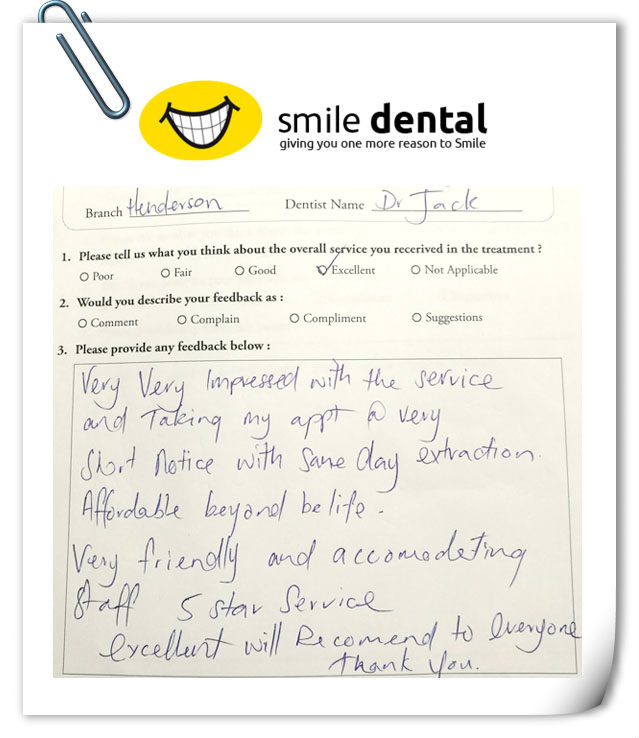 smile dental
giving you one more reason to Smile
Branch Henderson Dentist Name Dr Jack
1. Please tell us what you think about the overall service you recerived in the treatment ?
Poor Fair Good Excellent Not Applicable
2. Would you describe your feedback as :
Comment Complain Compliment Suggestions
3. Please provide any feedback below :
Very Very Impressed with the service
and Taking my appt @ very
Short Notice with Same day extraction.
Affordable beyond belife.
Very friendly and accomodeting
Staff 5 star Service
excellent will Recomend to Everyone
thank You.